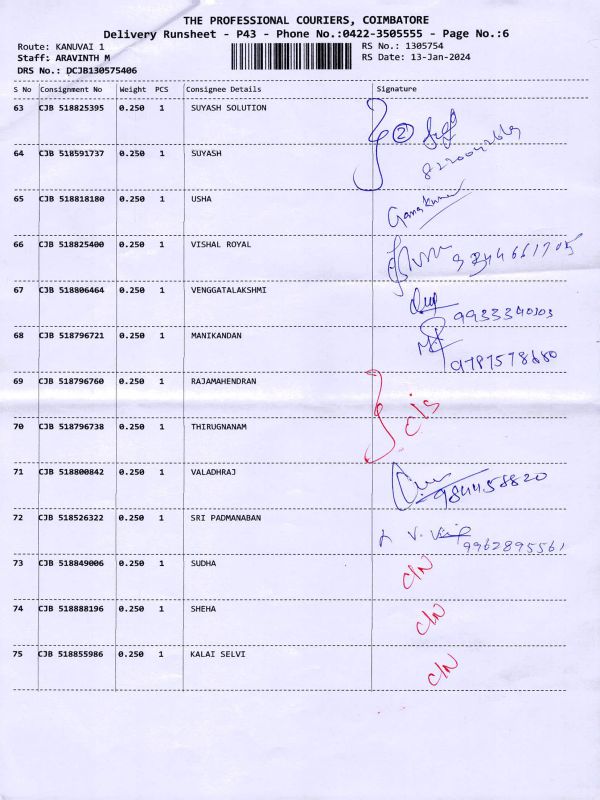 THE PROFESSIONAL COURIERS, COIMBATORE
Delivery Runsheet - P43 - Phone No.:0422-3505555 - Page No.:6
Route: KANUVAI 1
RS No.: 1305754
Staff: ARAVINTH M
RS Date: 13-Jan-2024
DRS No.: DCJB130575406
S No Consignment No Weight PCS Consignee Details Signature
63 CJB 518825395 0.250 1 SUYASH SOLUTION
2
64 CJB 518591737 0.250 1 SUYASH
65 CJB 518818180 0.250 1 USHA
66 CJB 518825400 0.250 1 VISHAL ROYAL
67 CJB 518806464 0.250 1 VENGGATALAKSHMI
68 CJB 518796721 0.250 1 MANIKANDAN
9787578680
69 CJB 518796760 0.250 1 RAJAMAHENDRAN
c/s
70 CJB 518796738 0.250 1 THIRUGNANAM
71 CJB 518800842 0.250 1 VALADHRAJ
72 CJB 518526322 0.250 1 SRI PADMANABAN
9962895561
73 CJB 518849006 0.250 1 SUDHA C/N
74 CJB 518888196 0.250 1 SHEHA C/N
75 CJB 518855986 0.250 1 KALAI SELVI C/N